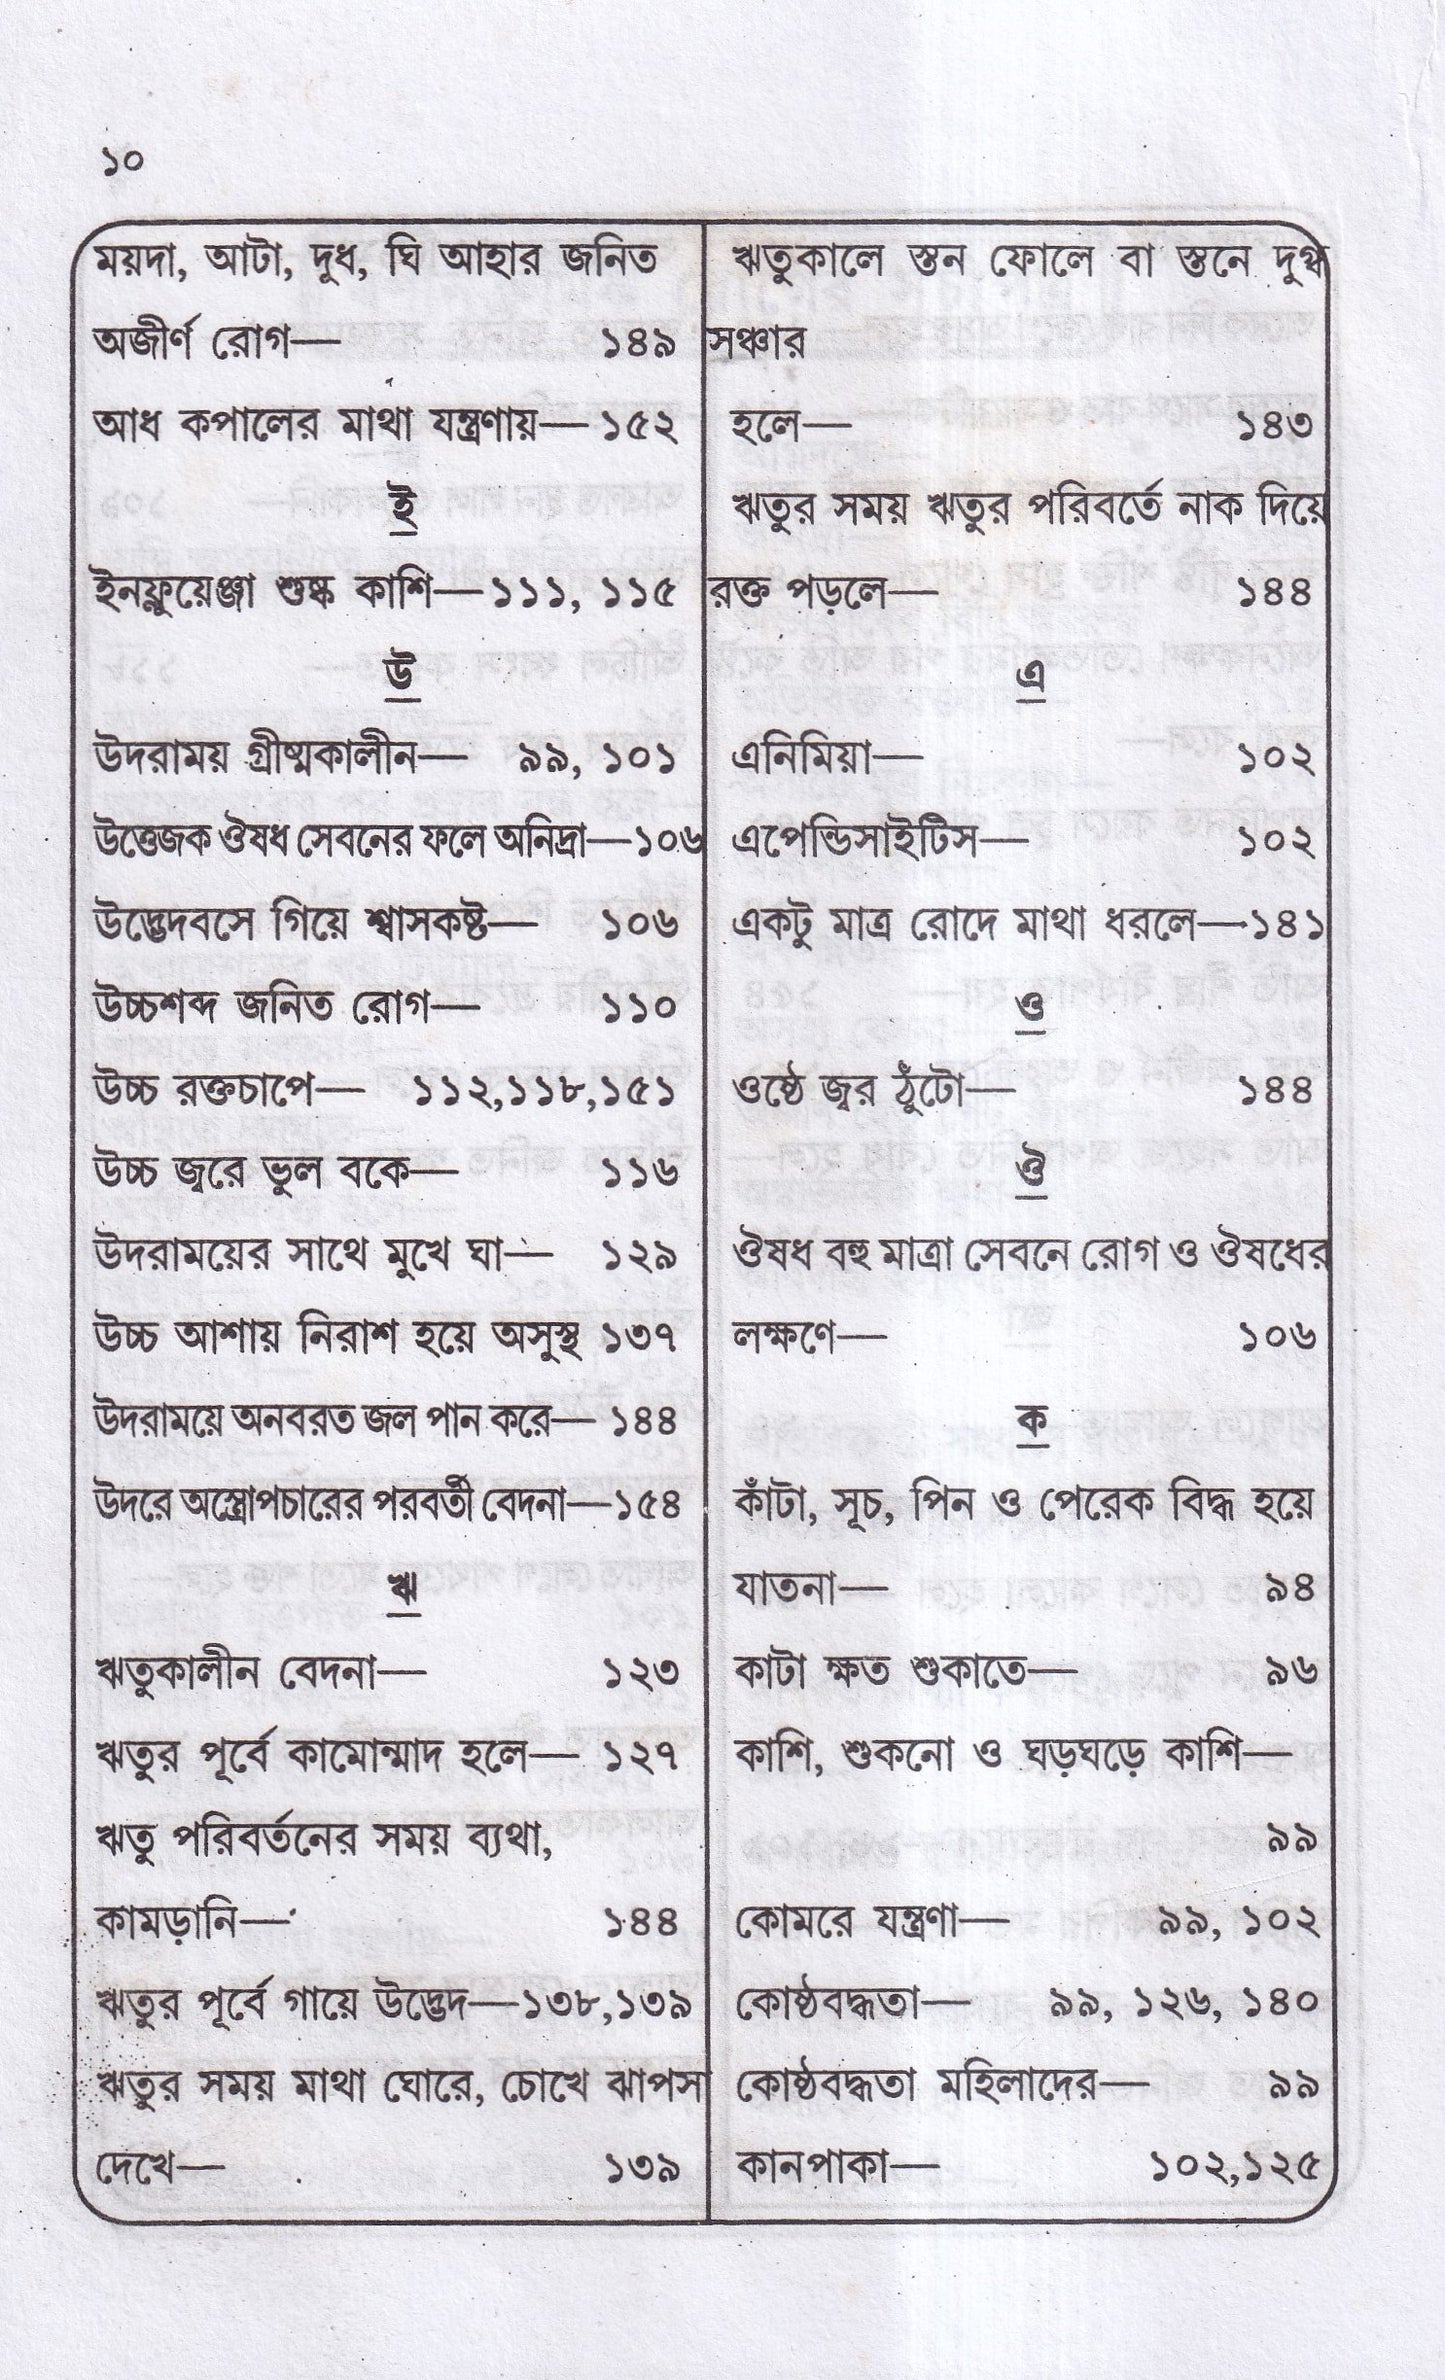 ১০
ময়দা, আটা, দুধ, ঘি আহার জনিত
অজীর্ণ রোগ— ১৪৯
আধ কপালের মাথা যন্ত্রণায়— ১৫২
ই
ইনফ্লুয়েঞ্জা শুষ্ক কাশি— ১১১, ১১৫
উ
উদরাময় গ্রীষ্মকালীন— ৯৯, ১০১
উত্তেজক ঔষধ সেবনের ফলে অনিদ্রা—১০৬
উদ্ভেদবসে গিয়ে শ্বাসকষ্ট— ১০৬
উচ্চশব্দ জনিত রোগ— ১১০
উচ্চ রক্তচাপে— ১১২,১১৮,১৫১
উচ্চ জ্বরে ভুল বকে— ১১৬
উদরাময়ের সাথে মুখে ঘা— ১২৯
উচ্চ আশায় নিরাশ হয়ে অসুস্থ ১৩৭
উদরাময়ে অনবরত জল পান করে— ১৪৪
উদরে অস্ত্রোপচারের পরবর্তী বেদনা—১৫৪
ঋ
ঋতুকালীন বেদনা— ১২৩
ঋতুর পূর্বে কামোন্মাদ হলে— ১২৭
ঋতু পরিবর্তনের সময় ব্যথা,
কামড়ানি— ১৪৪
ঋতুর পূর্বে গায়ে উদ্ভেদ—১৩৮,১৩৯
ঋতুর সময় মাথা ঘোরে, চোখে ঝাপসা
দেখে— ১৩৯
ঋতুকালে স্তন ফোলে বা স্তনে দুগ্ধ
সঞ্চার
হলে— ১৪৩
ঋতুর সময় ঋতুর পরিবর্তে নাক দিয়ে
রক্ত পড়লে— ১৪৪
এ
এনিমিয়া— ১০২
এপেন্ডিসাইটিস— ১০২
একটু মাত্র রোদে মাথা ধরলে—১৪১
ও
ওষ্ঠে জ্বর ঠুঁটো— ১৪৪
ঔ
ঔষধ বহু মাত্রা সেবনে রোগ ও ঔষধের
লক্ষণে— ১০৬
ক
কাঁটা, সূচ, পিন ও পেরেক বিদ্ধ হয়ে
যাতনা— ৯৪
কাটা ক্ষত শুকাতে— ৯৬
কাশি, শুকনো ও ঘড়ঘড়ে কাশি—
৯৯
কোমরে যন্ত্রণা— ৯৯, ১০২
কোষ্ঠবদ্ধতা— ৯৯, ১২৬, ১৪০
কোষ্ঠবদ্ধতা মহিলাদের— ৯৯
কানপাকা— ১০২,১২৫